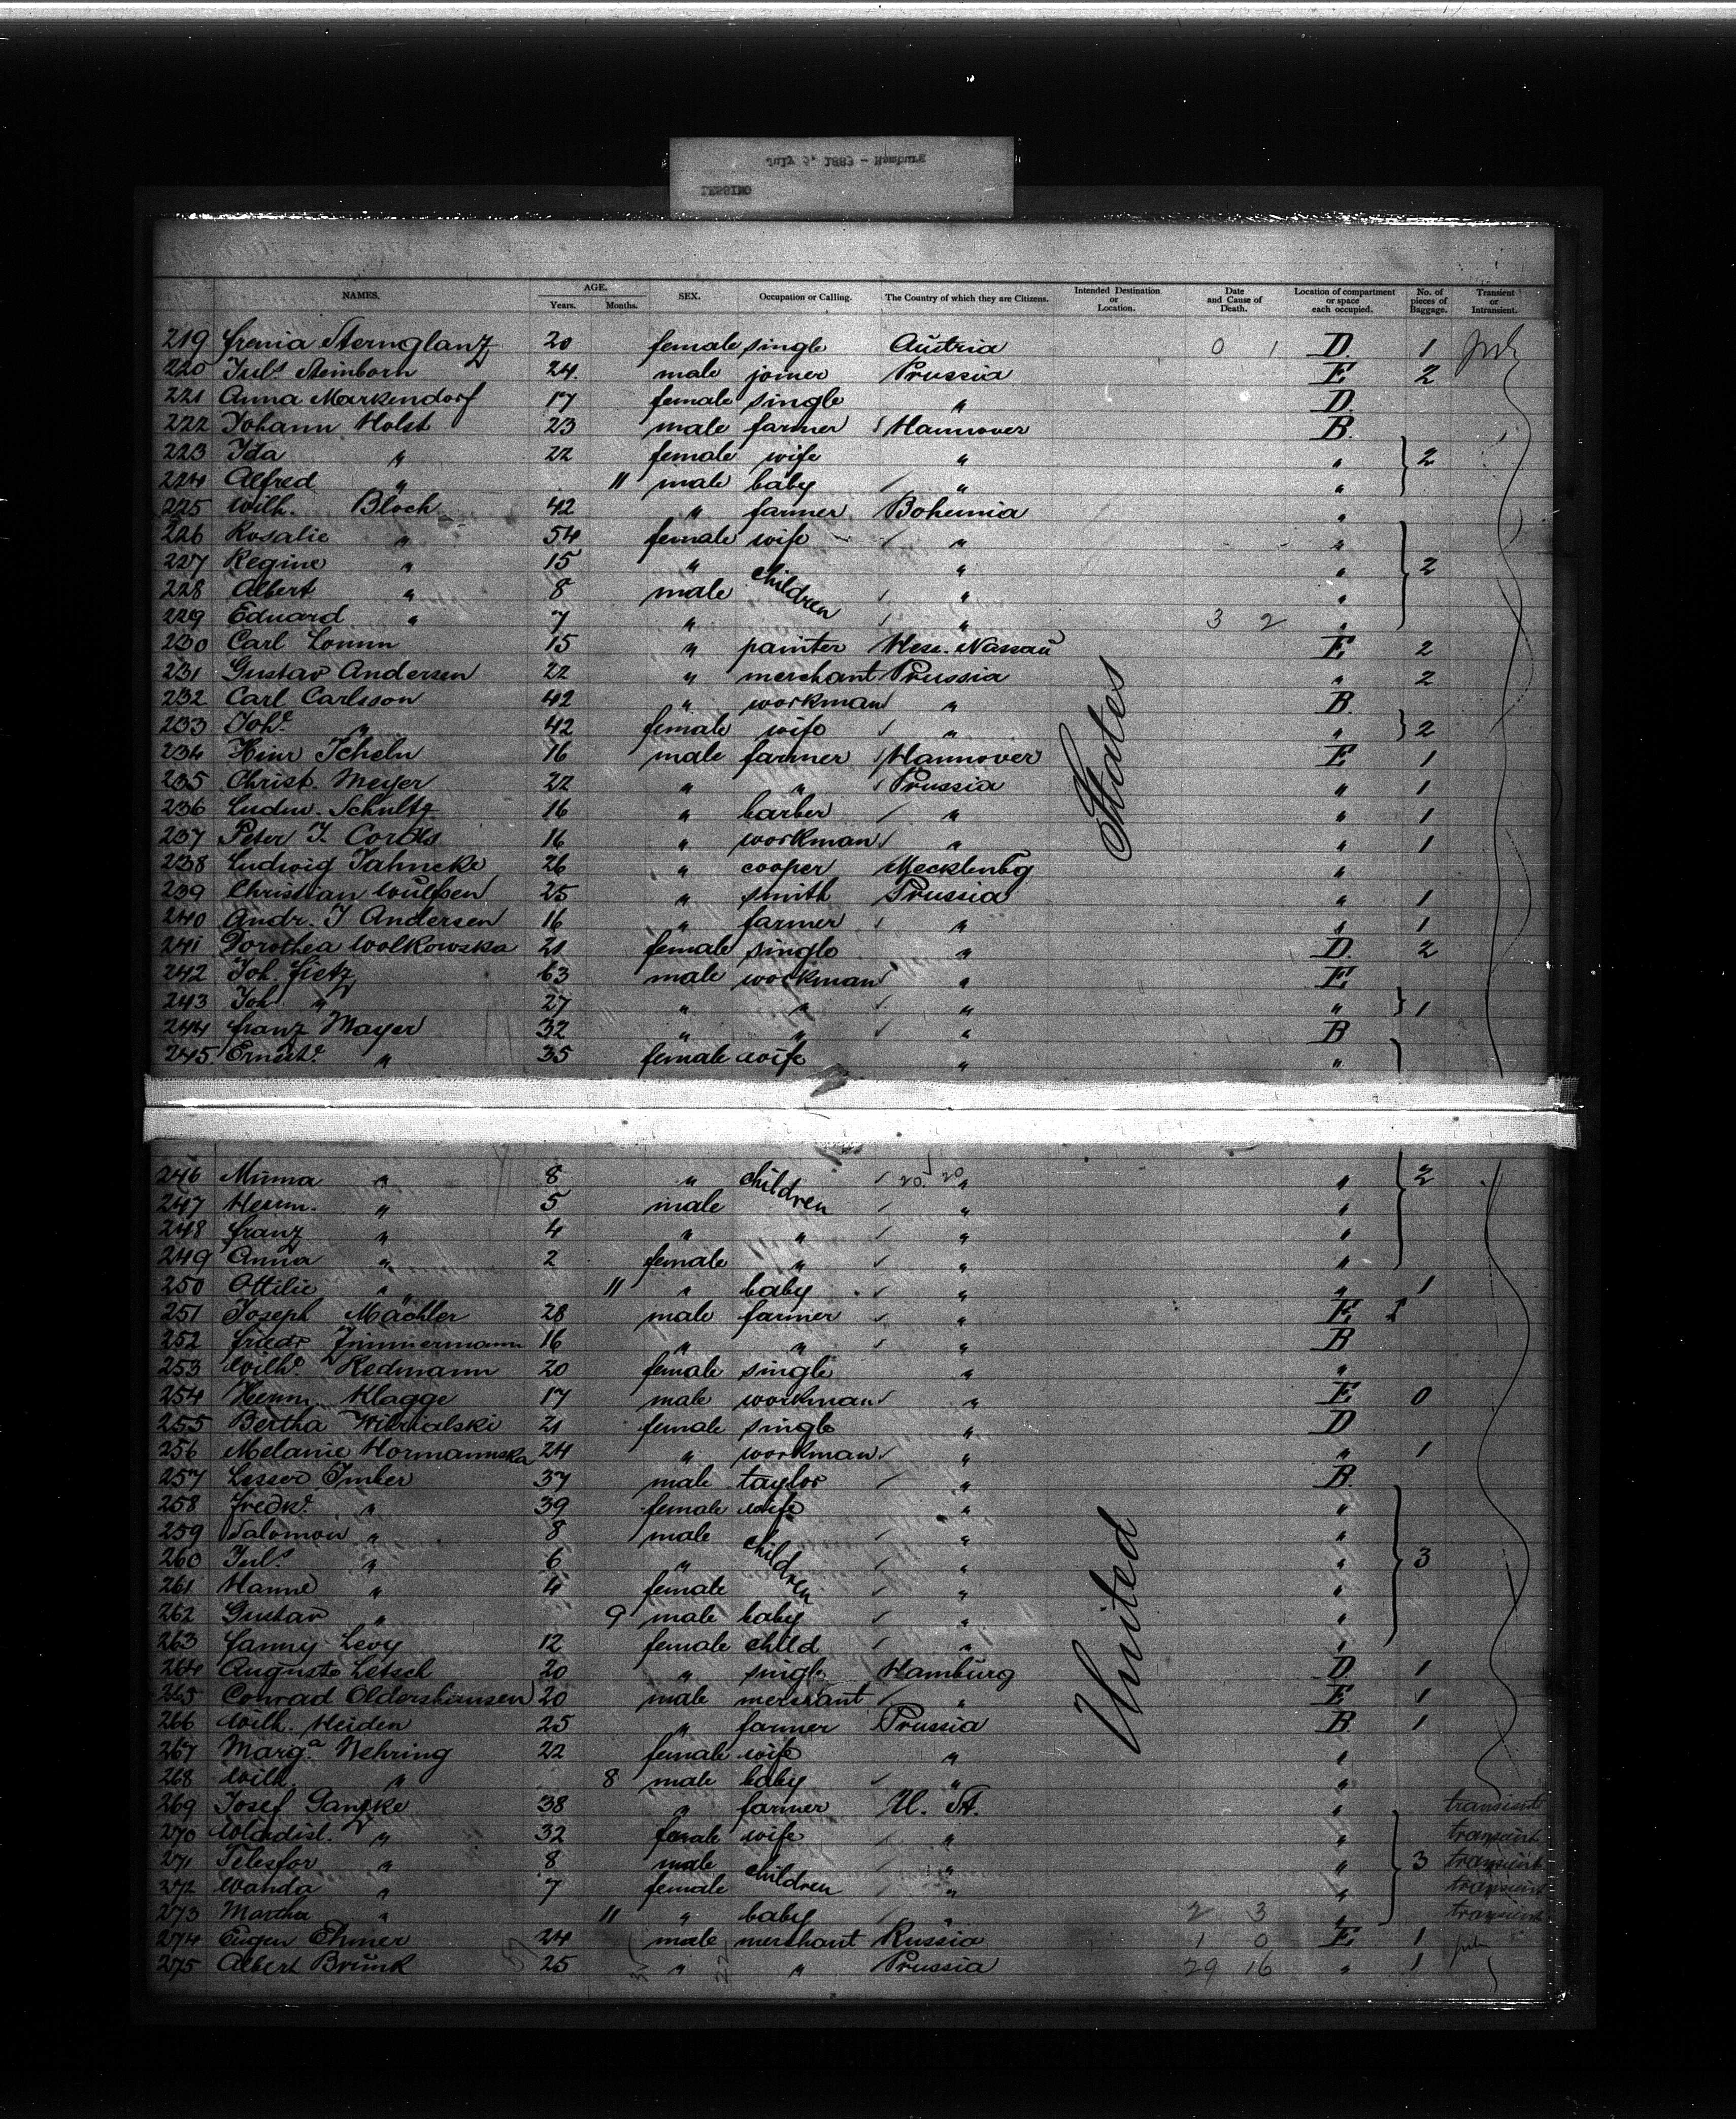 July 5, 1883 - Hamburg
LESSING
NAMES. AGE. Years. Months. SEX. Occupation or Calling. The Country of which they are Citizens. Intended Destination or Location. Date and Cause of Death. Location of compartment or space each occupied. No. of pieces of Baggage. Transient or Intransient.
219 Sternglanz 20 female single Austria 0 1 D. 1
220 Juls Steinborn 24. male joiner Prussia E 2
221 Anna Markendorf 17 female single " D.
222 Johann Holst 23 male farmer Hannover B.
223 Ida " 22 female wife " " 2
224 Alfred " 11 male baby " "
225 Wilh. Bloch 42 " farmer Bohemia "
226 Rosalie " 54 female wife " "
227 Regine " 15 " children " " 2
228 Albert " 8 male " "
229 Eduard " 7 " " 3 2 "
230 Carl 15 " painter Hess. Nassau E 2
231 Gustav Andersen 22 " merchant Prussia " 2
232 Carl Carlsson 42 " workman " B.
233 Johe " 42 female wife " " 2
234 Hinr 16 male farmer Hannover E 1
235 Christ. Meyer 22 " " Prussia " 1
236 Ludw. Schultz 16 " barber " " 1
237 Peter J. Cordts 16 " workman " " 1
238 Ludwig Jahncke 26 " cooper Mecklenbg "
239 Christian Wulfsen 25 " smith Prussia " 1
240 Andr. J Andersen 16 " farmer " " 1
241 Dorothea Wolkowska 21 female single " D. 2
242 Joh. Fietz 63 male workman " E
243 Joh " 27 " " " " 1
244 Franz Mayer 32 " " " B
245. Ernste " 35 female wife " "
246 Minna " 8 " children 20 20 " " 2
247 Herm. " 5 male " "
248 Franz " 4 " " " "
249 Anna " 2 female " " "
250 Ottilie " 11 " baby " " 1
251 Joseph Mächler 28 male farmer " E 1
252 Friedr Zimmermann 16 " " " B
253 Wilhe Redmann 20 female single " "
254 Herm. Klagge 17 male workman " E 0
255 Bertha 21 female single " D
256 Melanie Hormannska 24 " workman " " 1
257 Lesser Imber 37 male taylor " B.
258 Fredke " 39 female wife " "
259 Salomon " 8 male children " "
260 Juls " 6 " " " 3
261 Hanne " 4 female " "
262 Gustav " 9 male baby " "
263 Fanny Levy 12 female child " "
264 Auguste Letsch 20 " single Hamburg D. 1
265 Conrad Oldershausen 20 male merchant " E 1
266 Wilh. Heiden 25 " farmer Prussia B. 1
267 Marga Nehring 22 female wife " "
268 Wilh. " 8 male baby " "
269 Josef Ganzke 38 " farmer U. St. " transient
270 Wladisl. " 32 female wife " " transient
271 Telesfor " 8 male children " " 3 transient
272 Wanda " 7 female " " transient
273 Martha " 11 " baby " 2 3 " transient
274 Eugen Ehmer 24 male merchant Russia 1 0 E 1
275 Albert Brünk 25 " " Prussia 29 16 " 1
United States